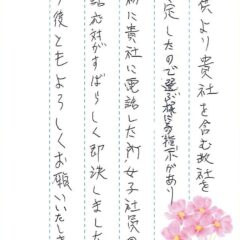 供より貴社を含む数社を
定したので選ぶ様にの指示があり
前に貴社に電話した所女子社員の
話応対がすばらしく即決しました
後ともよろしくお願いいたしま